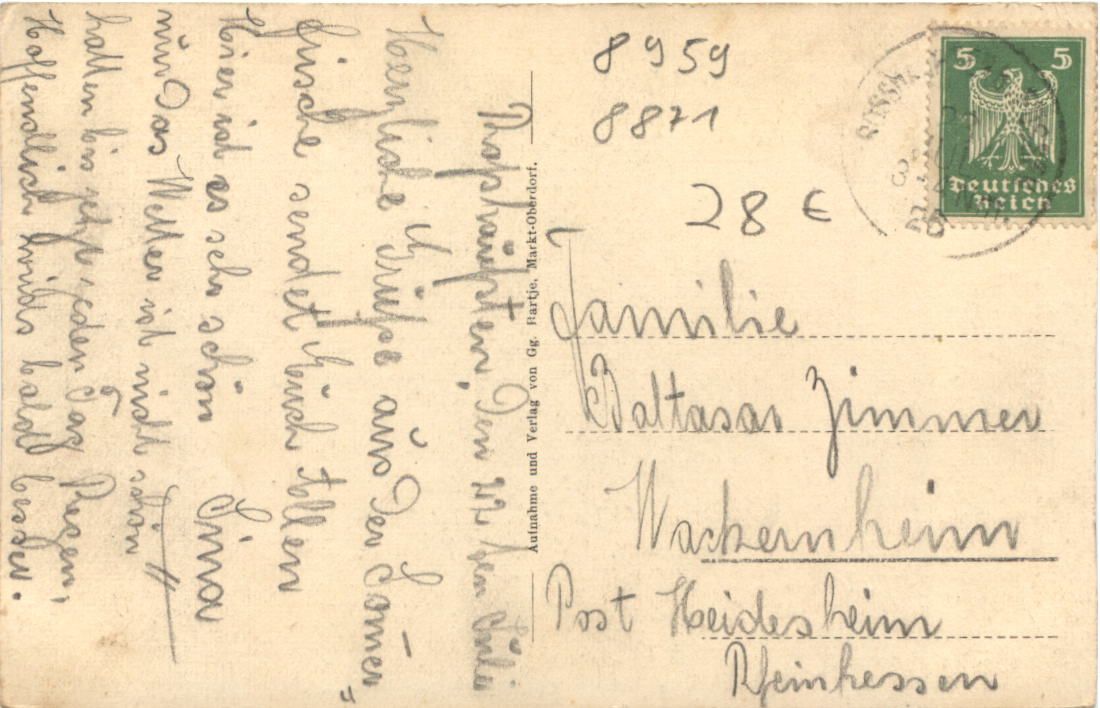 Roßhaupten, den 22ten Juli
Herzliche Grüße aus der Somer„
frische sendet Euch Allen
Hier ist es sehr schön Lina
nur das Wetter ist nicht schön
hatten bis jetzt jeden Tag Regen,
Hoffendlich wirds bald besser.
Aufnahme und Verlag von Gg. Hartje, Markt-Oberdorf.
8959
8871
28 €
5 5
Deutsches
Reich
Familie
Baltasar Zimmer
Wackernheim
Post Heidesheim
Rheinhessen